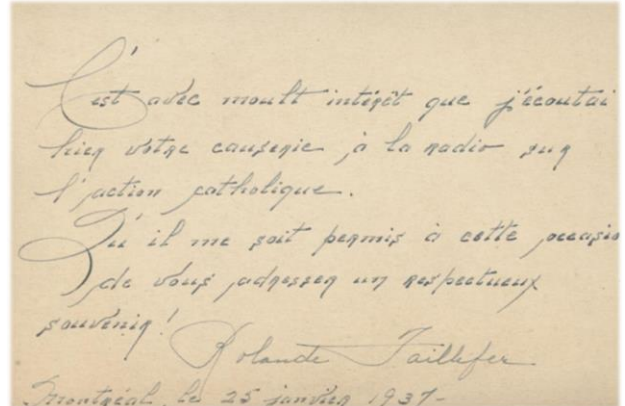 C'est avec moult intérêt que j'écoutai
hier votre causerie à la radio sur
l'action catholique.
Qu'il me soit permis à cette occasio
de vous adresser un respectueux
souvenir!
Rolande Taillefer
Montréal, le 25 janvier 1937-